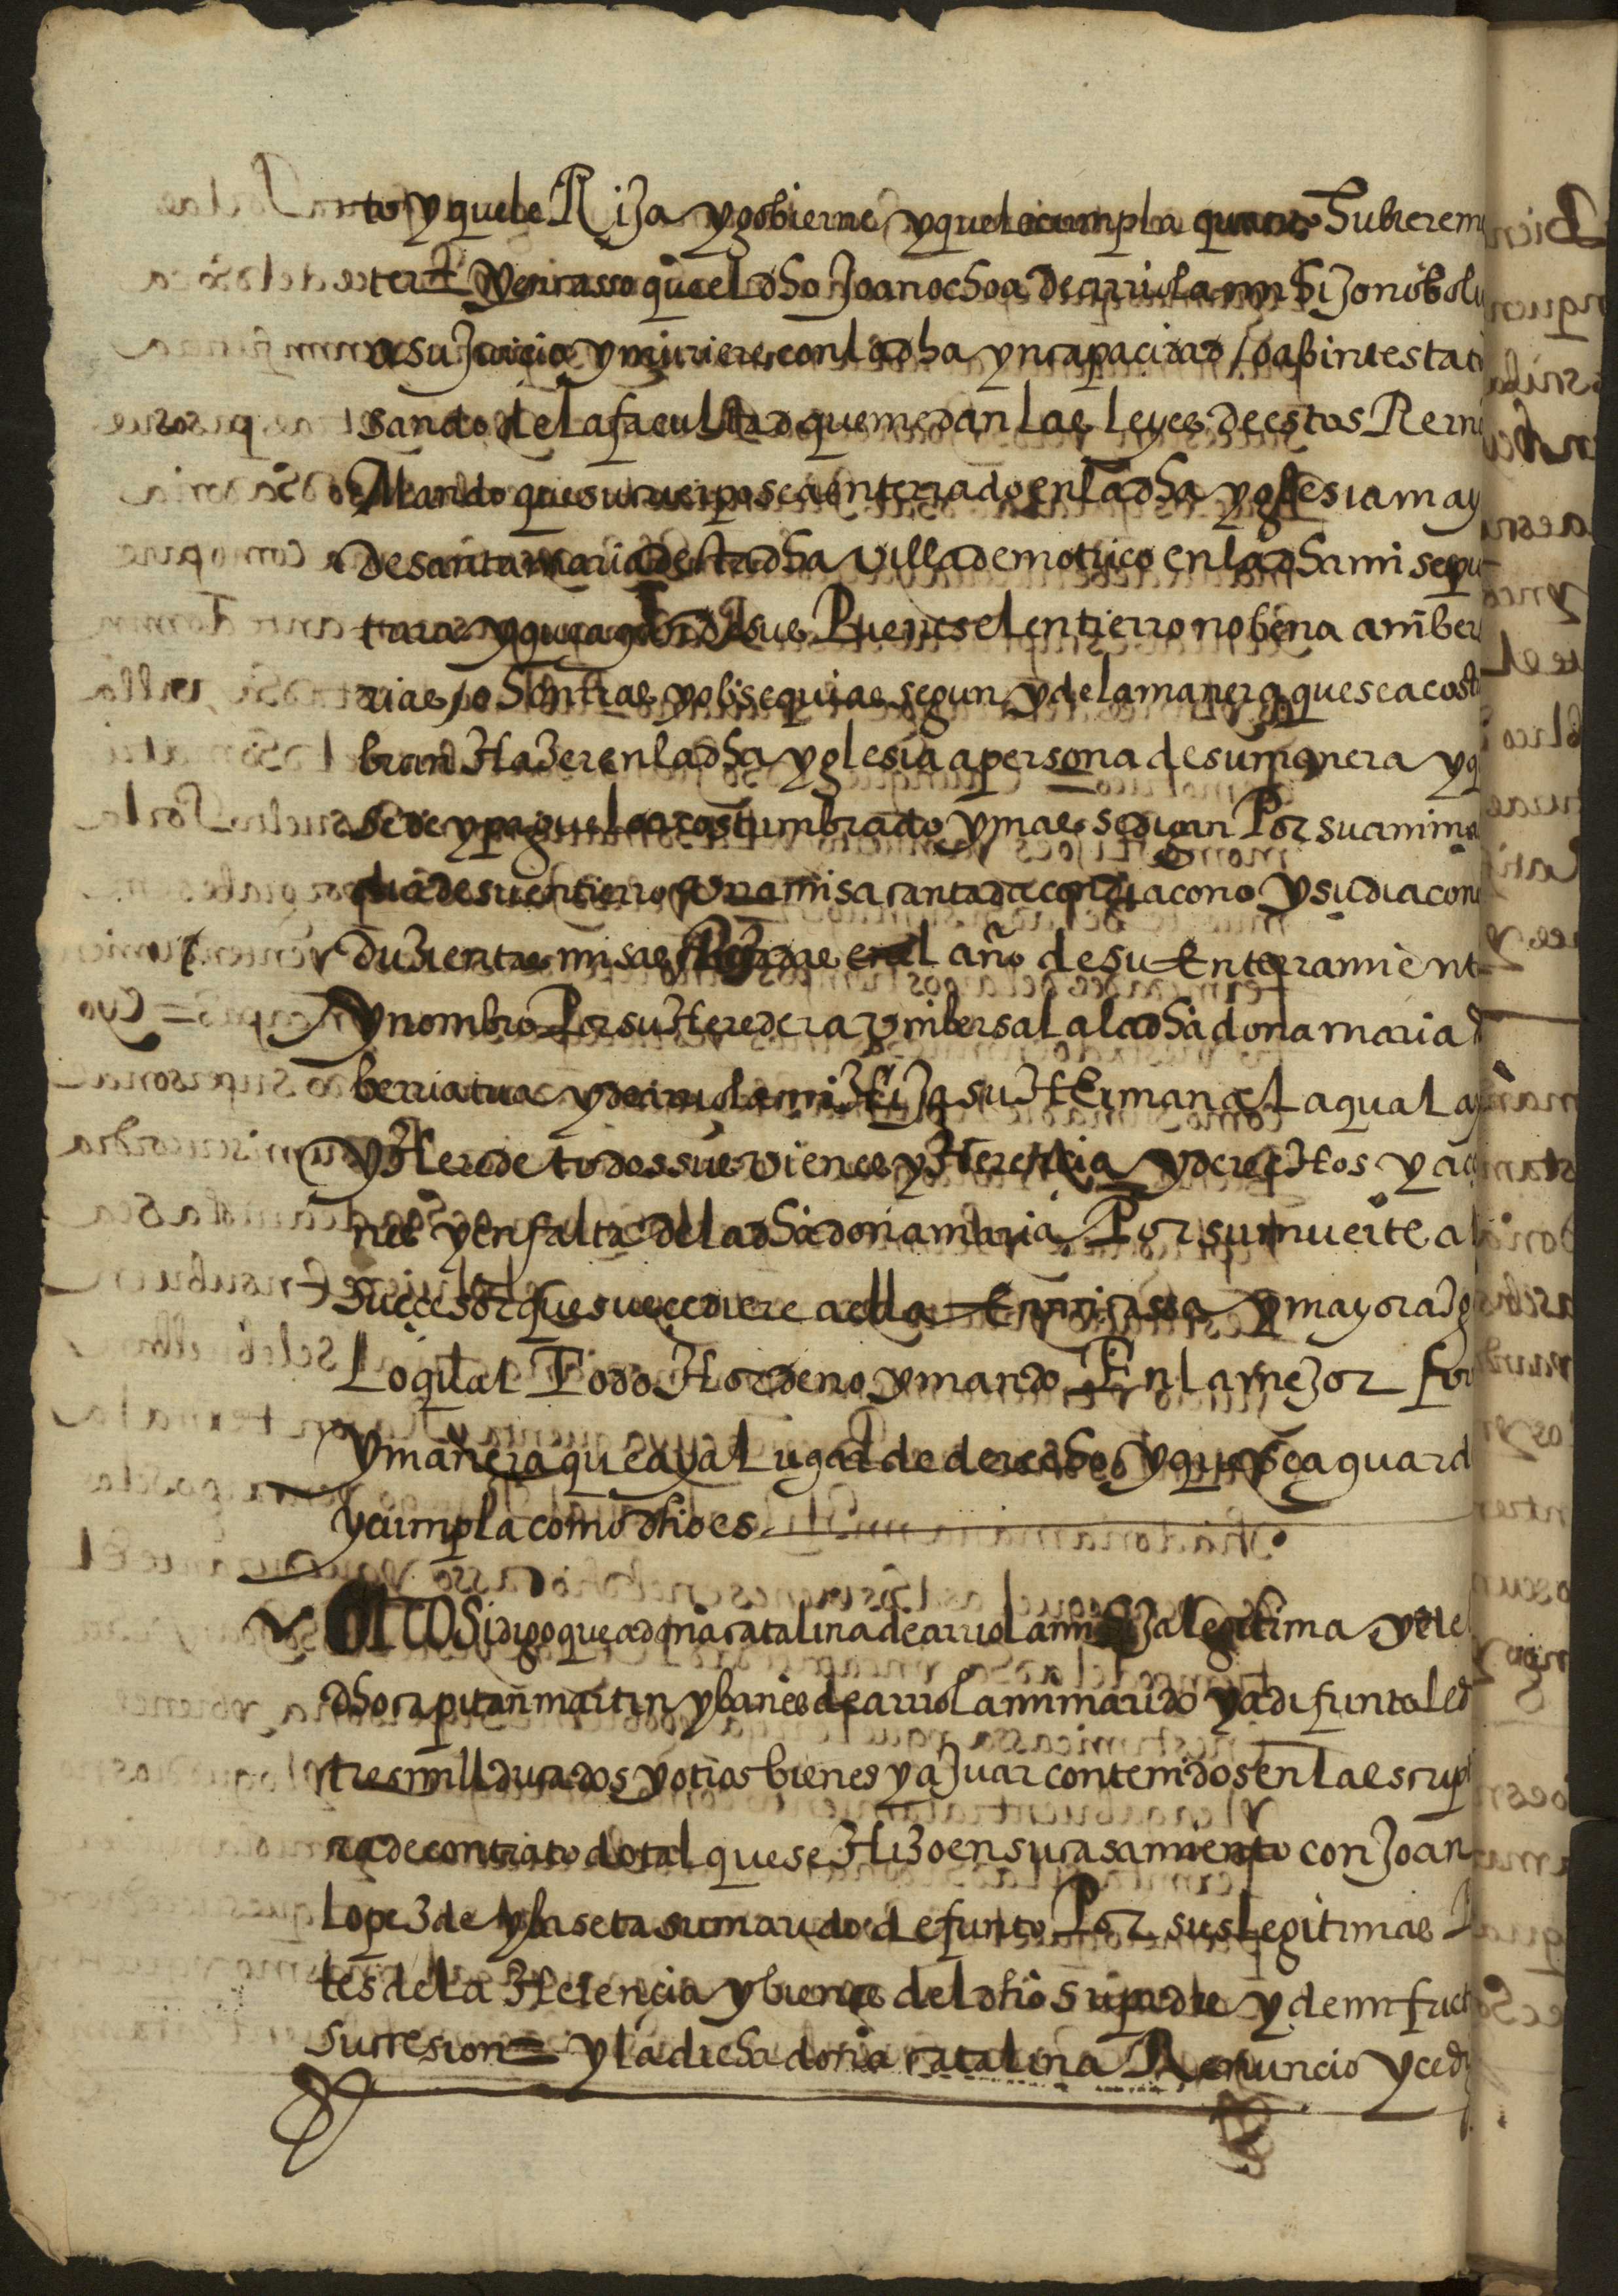 to y que le Rija y gobierne, y que lo cumpla quando Tubiere me
ter y en casso que el dho Joan ochoa de arriola mi hijo no bol
a su Juicio y muriere con la dha yncapacidad / o abintestat
sando de la facultad que me dan las leyes de estos Rein
Mando que su cuerpo sea enterrado en la dha yglesia may
de santa maria de esta dha villa de motrico en la dha mi sepu
tura y que a de sus Buenes el entierro nobena aniber
rias / o honrras y obsequias segun y de la manera que se acost
bran Hazer en la dha yglesia a persona de su manera y q
se de y pague lo acostumbrado y mas se digan Por su anima
dia de su entierro Una misa cantada con diacono y sudiacon
duzientas misas Rezadas en el año de su Enterramient
y nombro Por su Heredera Vnibersal a la dha dona maria d
berriatua y de arriola mi Hija su HErmana La qual a
y Herede todos sus vienes y Herencia y derecHos y ac
nes y en falta de la dha dona maria Por su muerte al
suççesor que suççediere a ella En mi cassa y mayorazg
Lo qual Todo Hordeno y mando En la mejor for
y manera que aya Lugar de derecho y que se a guard
y cumpla como dho es
OtroSi digo que a dona catalina de arriola mi Hija legitima y del
dho capitan martin ybanes de arriola mi marido ya difunto le d
tres mill ducados y otros bienes y aJuar contenidos En la escript
ra de contrato dotal que se Hizo en su casamiento con Joan
lopez de ybaseta su marido defunto Por sus Legitimas
tes de la Herençia y bienes del dho su padre y de mi fuct
succesion = y la dicha doña catalina Renuncio y ced